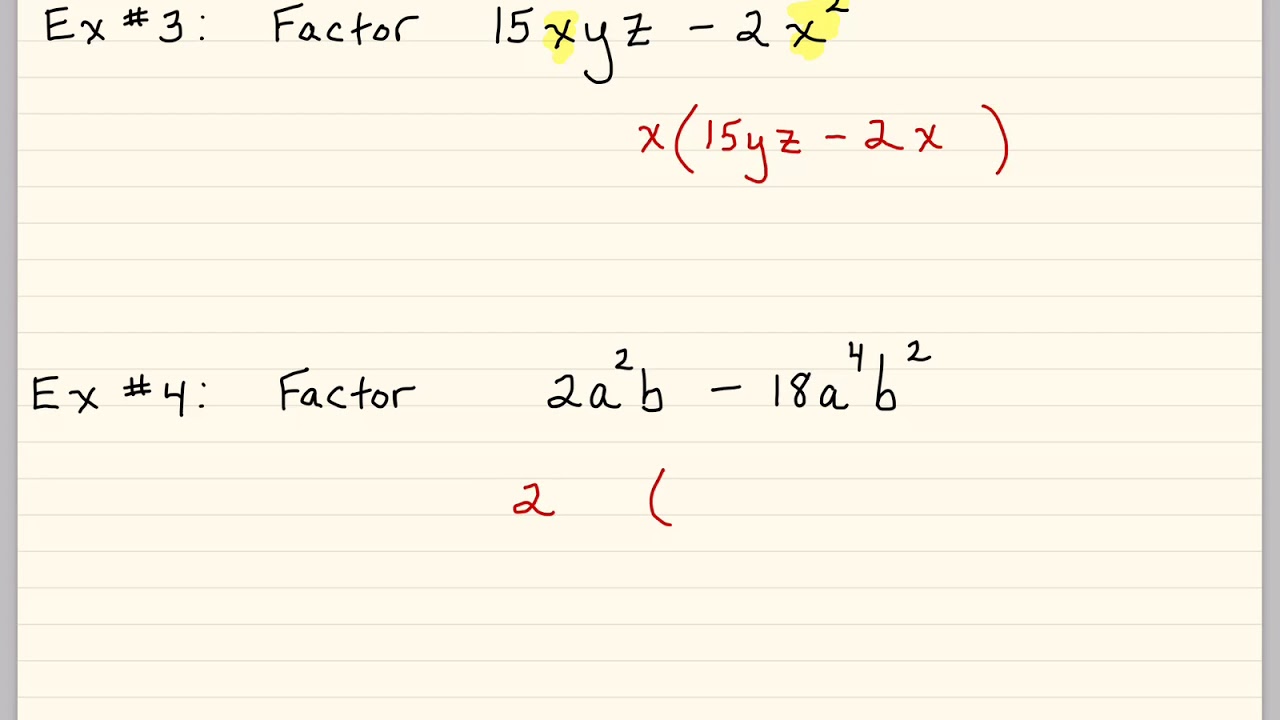 Ex #3: Factor 15xyz - 2x²
x(15yz - 2x )
Ex #4: Factor 2a²b - 18a⁴b²
2 (